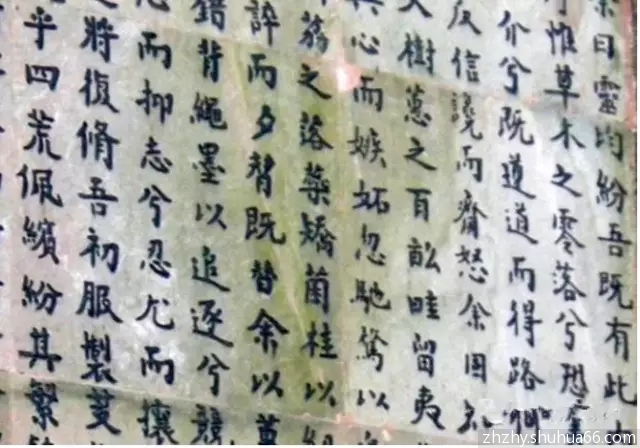 曰靈均紛吾既有此
惟草木之零落兮恐
介兮既遵道而得路
反信讒而齋怒余固
樹蕙之百畝畦留夷
心而嫉妬忽馳騖以
荔之落蘂矯菌桂以
誶而夕替既替余以蕙
錯背繩墨以追逐兮競
心而抑志兮忍尤而攘
之將復修吾初服製芰
乎四荒佩繽紛其繁
zhzhy.shuhua66.com